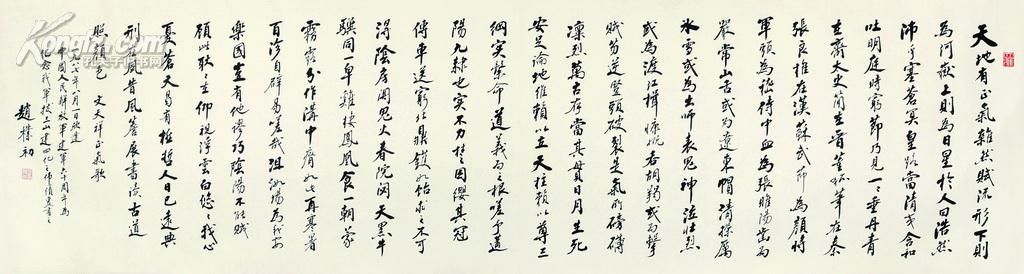 天地有正氣雜然賦流形下則
為河嶽上則為日星於人曰浩然
沛乎塞蒼冥皇路當清夷含和
吐明庭時窮節乃見一一垂丹青
在齊太史簡在晉董狐筆在秦
張良椎在漢蘇武節為嚴將
軍頭為嵇侍中血為張睢陽齒為
顏常山舌或為遼東帽清操厲
冰雪或為出師表鬼神泣壯烈
或為渡江楫慷慨吞胡羯或為擊
賊笏逆豎頭破裂是氣所磅礴
凜烈萬古存當其貫日月生死
安足論地維賴以立天柱賴以尊三
綱實繫命道義為之根嗟予遘
陽九隸也實不力楚囚纓其冠
傳車送窮北鼎鑊甘如飴求之不可
得陰房闃鬼火春院閟天黑牛
驥同一皁雞棲鳳凰食一朝蒙
霧露分作溝中瘠如此再寒暑
百沴自辟易嗟哉沮洳場為我安
樂國豈有他謬巧陰陽不能賊
顧此耿耿在仰視浮雲白悠悠我心
憂蒼天曷有極哲人日已遠典
刑在夙昔風簷展書讀古道
照顏色 文天祥正氣歌
一九八七年八月一日欣逢
中國人民解放軍建軍六十周年為
紀念我軍建四化之偉績
趙樸初
Kongfz.com
孔夫子旧书网